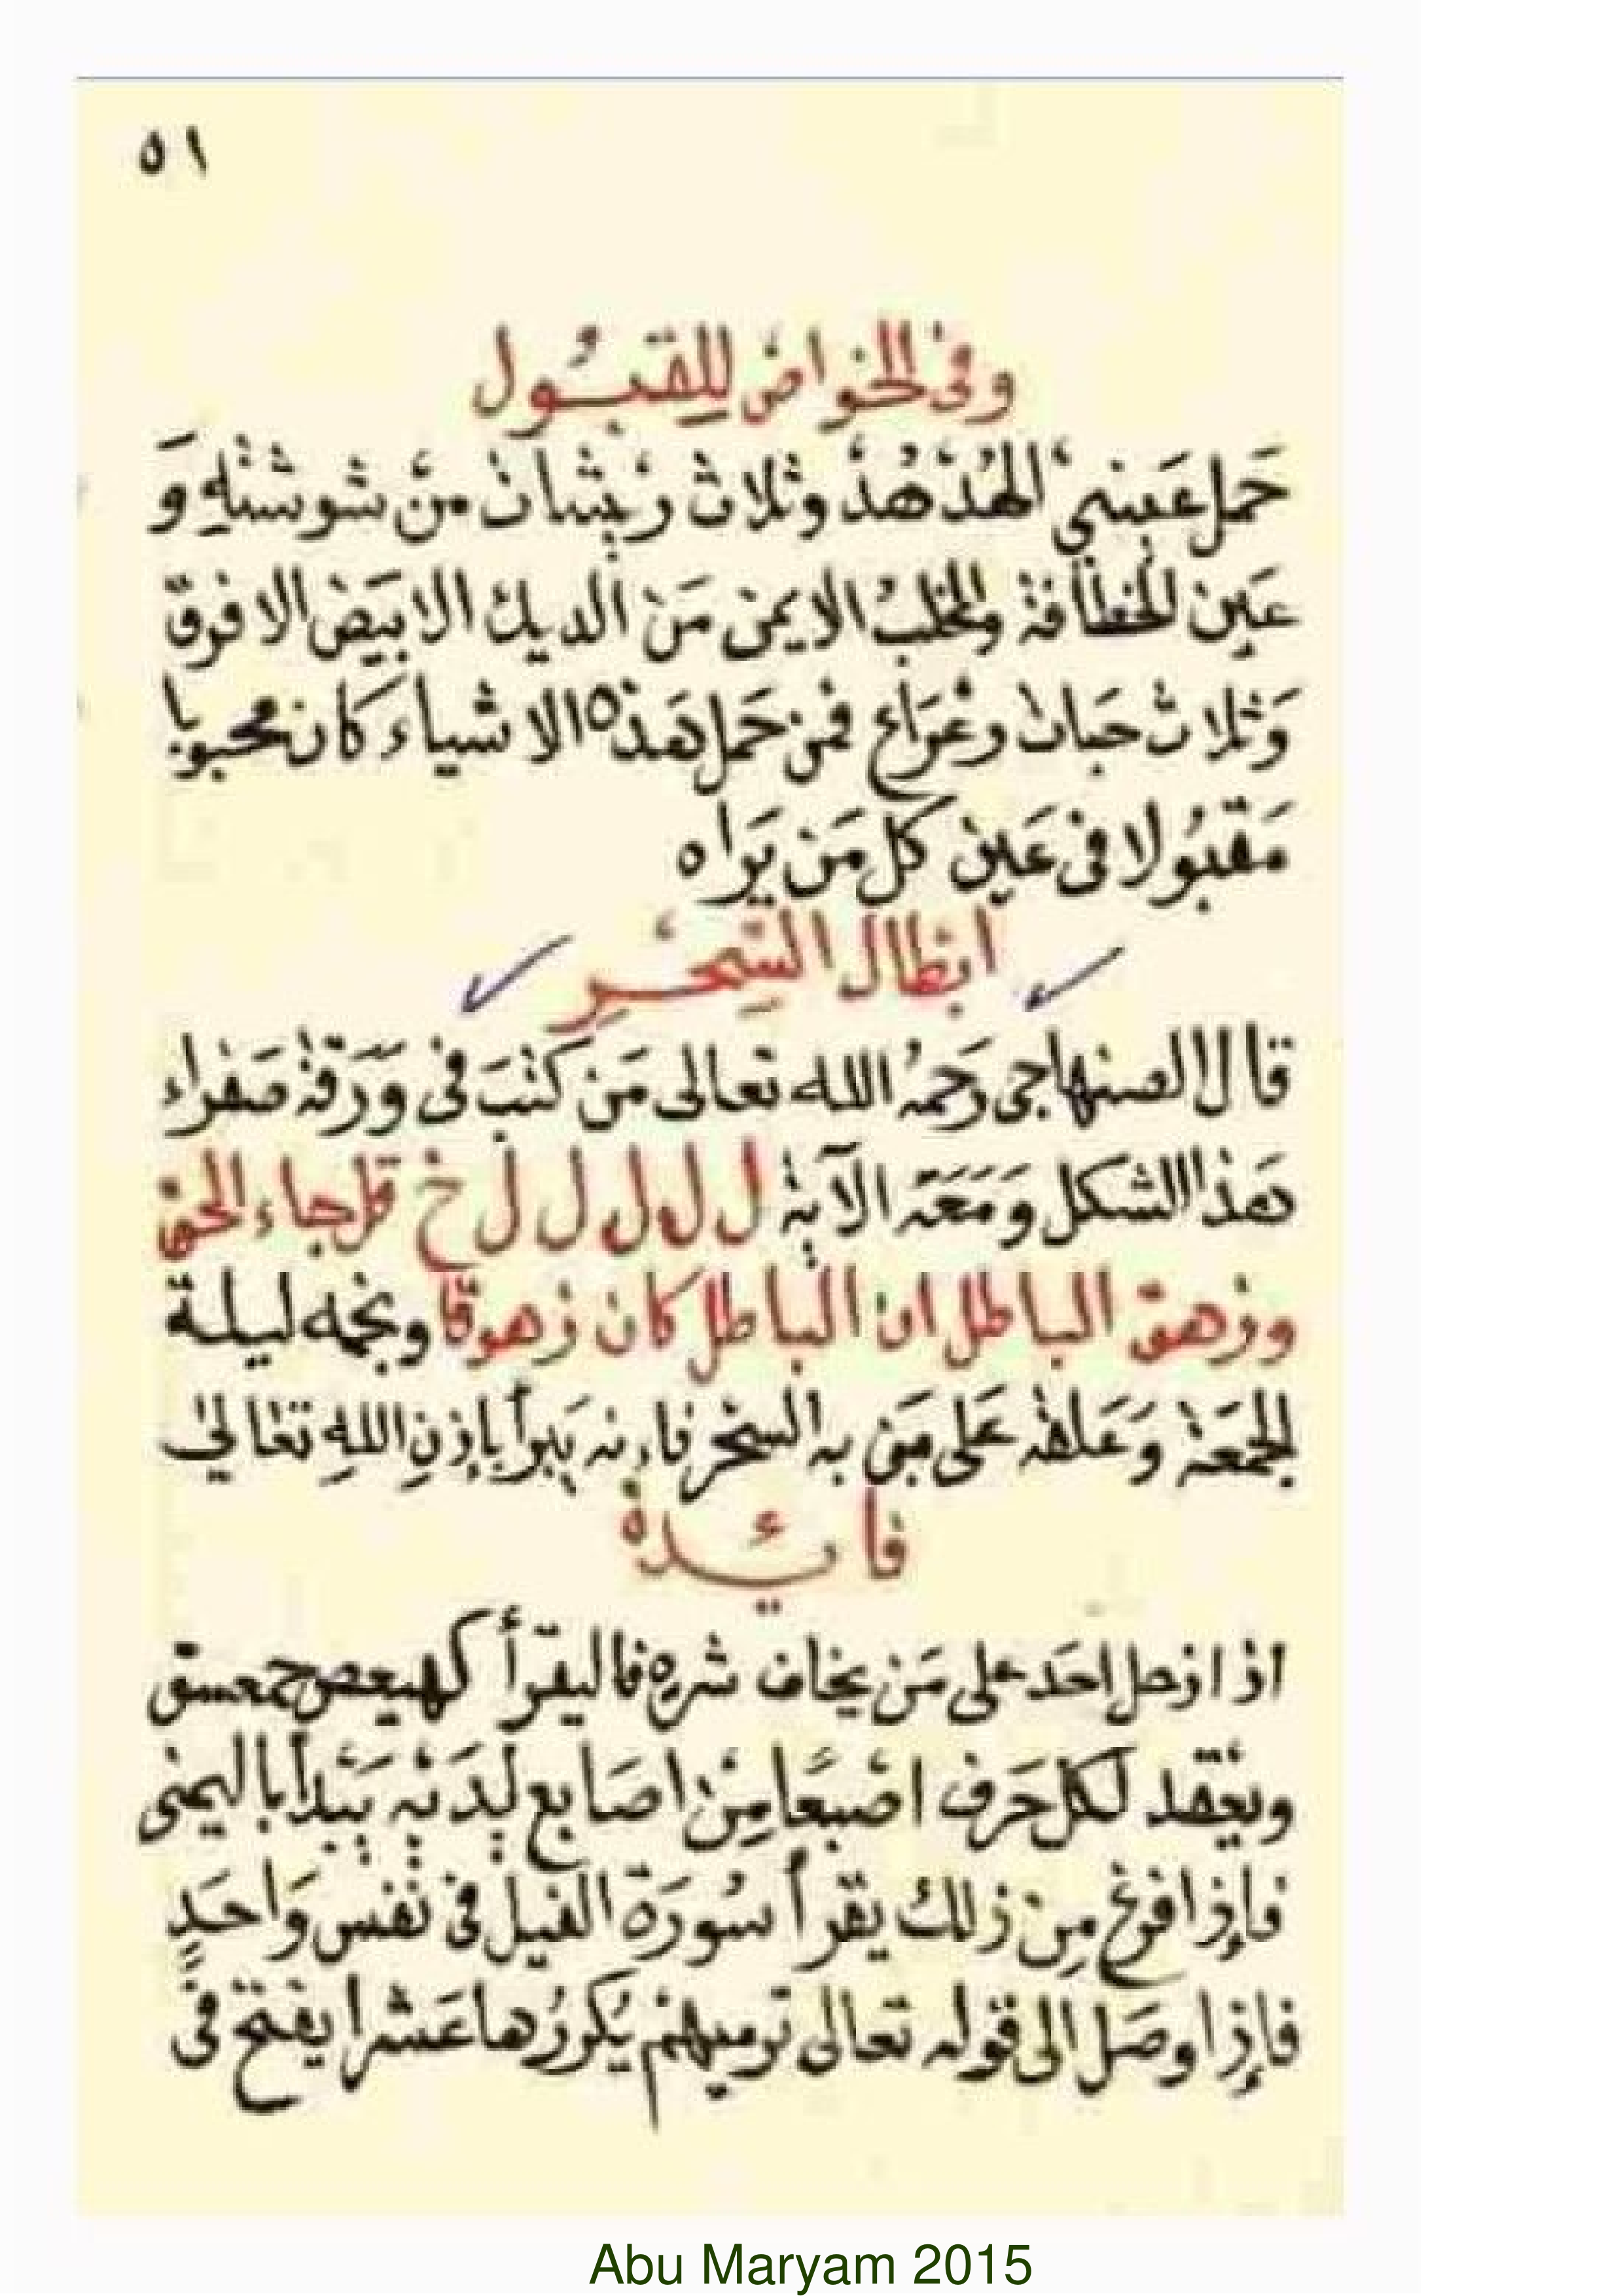 ٥١
وفى الخواص للقبُول
حَمل عَينى الهُدْهُدْ وثلاث ريْشات منْ شوشتهِ وَ
عَين الخطافة والمخلبُ الايمن مَن الديك الابيَض الافرق
وَثلاث حَبات وغراع فمن حَمل هَذه الاشياء كان محبوبا
مَقبُولا فى عَين كل مَن يَراه
ابْطال السِّحْرِ
قال الصنهاجى رَحمهُ الله تعالى مَن كتبَ فى وَرَقة صَفراء
هَذا الشكل وَمَعَه الآية ل ل ل ل ل خ قل جاء الحق
وزهق الباطل ان الباطل كان زهوقا ونجمه ليلة
الجمعَة وَعَلقه عَلى مَن به السحر فاءنه يَبرأ بإذنِ اللهِ تعَالى
فائدة
اذا ازحل احَد على مَن يخاف شره فاليقرأ كهيعص حمعسق
ويعقد لكل حَرف اصْبعَا مِنْ اصَابع لِدَيْهِ يَبْدأ باليمنى
فإذا فرغ مِن ذلك يقرأ سُورَة الفيل فى نفس وَاحَدٍ
فإذا وصَل الى قوله تعالى ترميهم يُكررُها عَشرا يفتح فى
Abu Maryam 2015